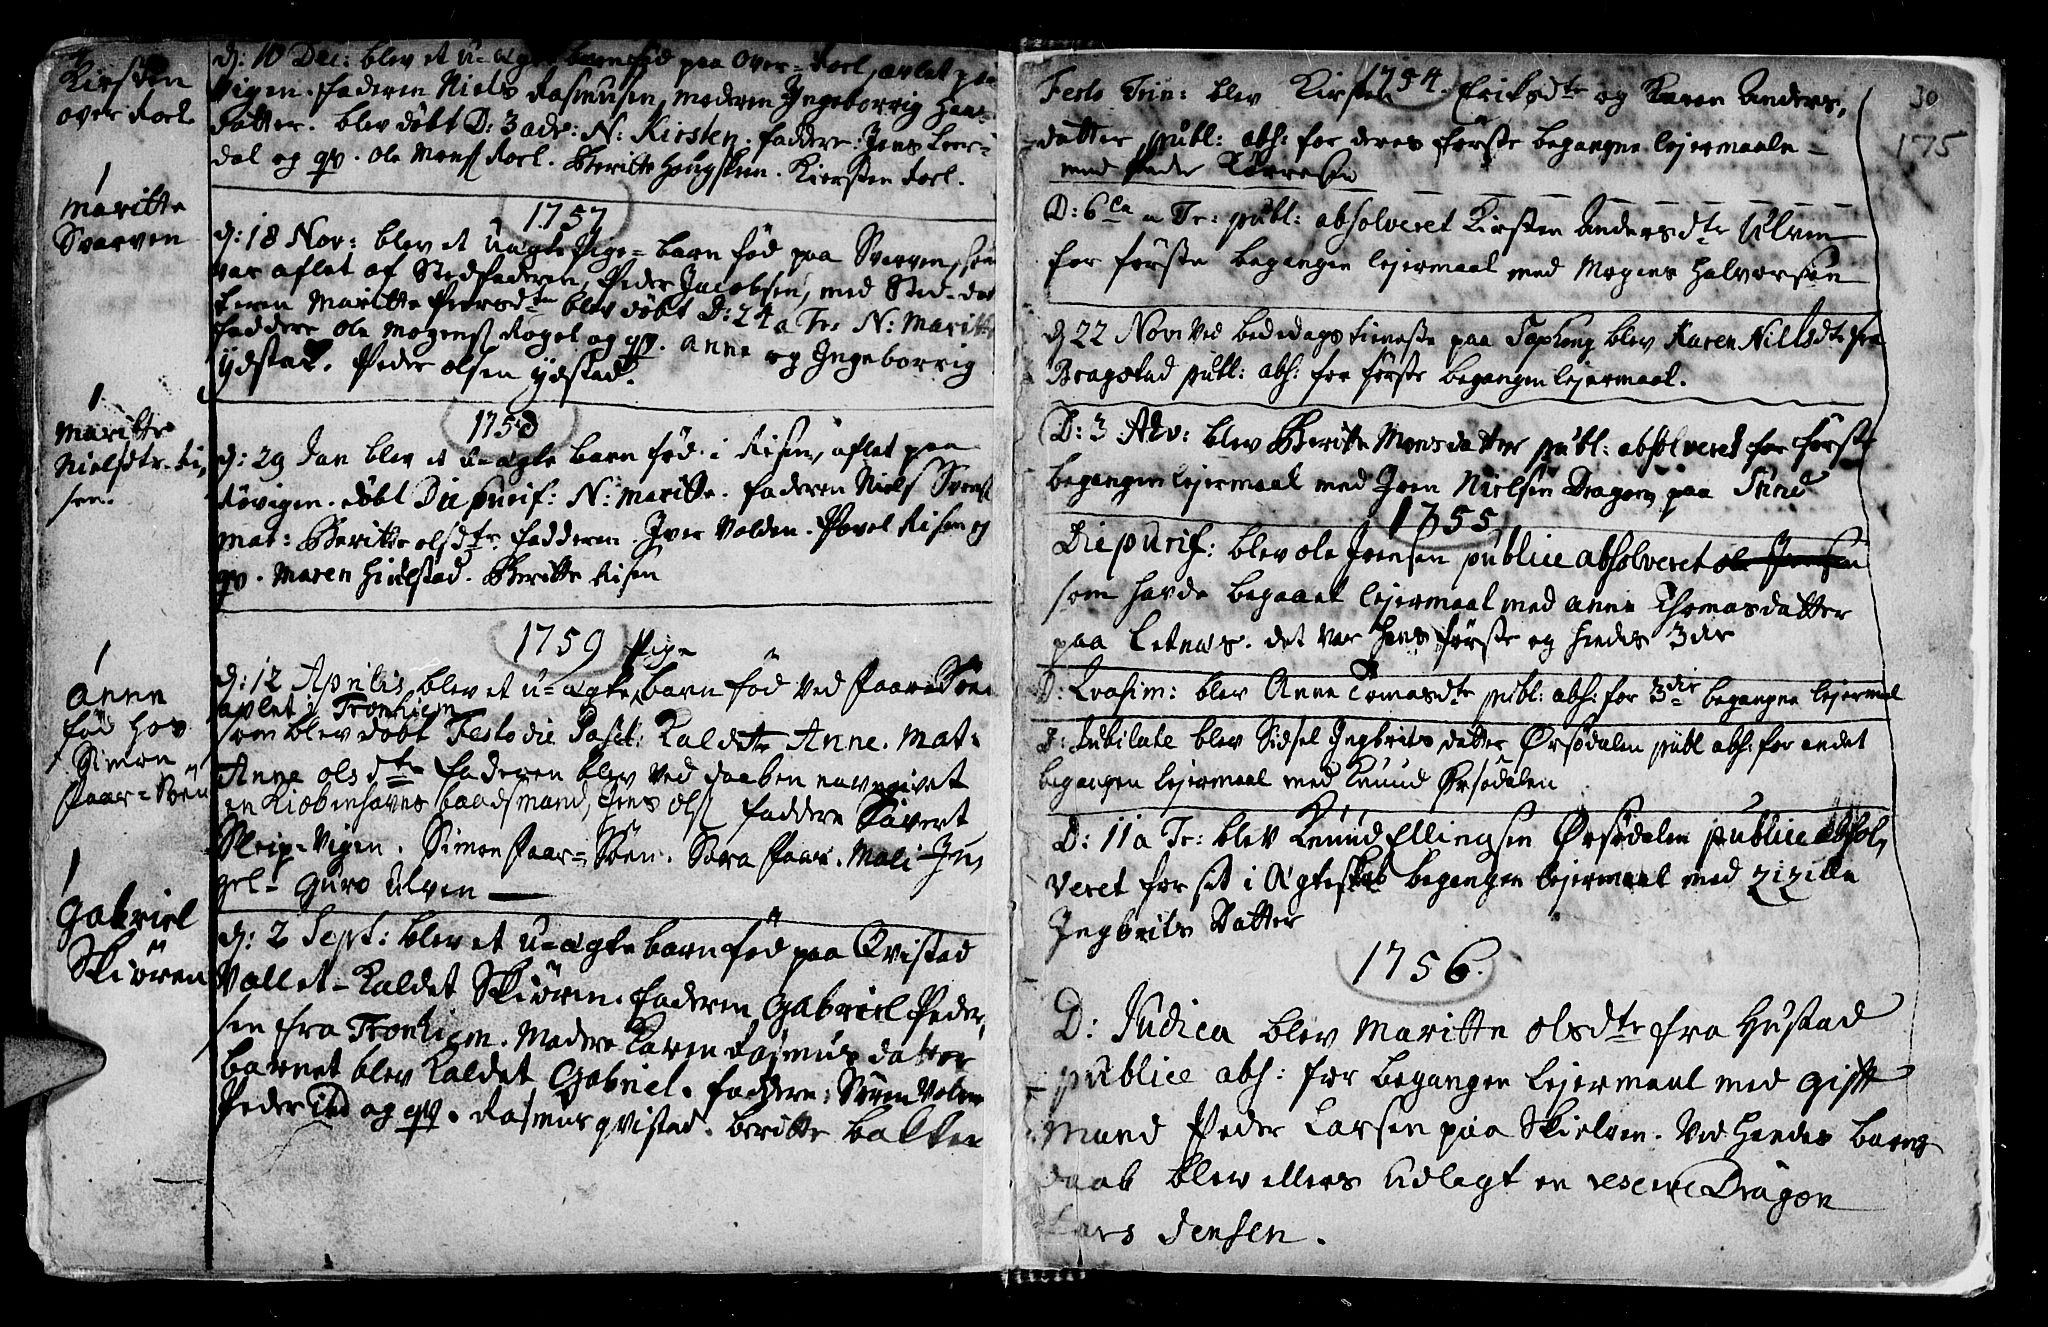 Kirsten
over Foel
d: 10 Dec: blev et u-ægte barn fød paa Over-Foel, avlet paa
Vigen. Faderen Niels Rasmusen, moderen Ingeborrig Hans
datter. blev døbt D: 3 adv: N: Kirsten. faddere: Jens Leer-
dal og qv. Ole Mons Foel. Beritte Hougskun. Kiersten Foel.
1757
1
Maritte
Svarven
d: 18 Nov: blev et Uægte Pige-barn fød paa Svarven, som
var aflet af Stedfaderen, Peder Jacobsen, med Sted-dat
teren Maritte Peersdtr blev døbt D: 24 a Tr. N: Maritte
faddere Ole Mogens Rogel og qv. Anne og Ingeborrig
Ydstad. Peder Olsen Ydstad.
1758
1
Maritte
Nielsdtr. Ri,
sen.
d: 29 Jan blev et U-ægte barn fød i Risen, aflet paa
Røvigen. døbt Die purif: N: Maritte. faderen Niels Svens
Mat: Beritte Olsdtr Fadderen Iver Volden. Povel Risen og
qv. Maren Hielstad. Beritte Risen
1759
1
Anne
fød hos
Simon
Paar-Søen
d: 12 Aprilis blev et u-ægte Pige barn fød ved Paare Søen
avlet i Tronhiem
som blev døbt Festo die Pasch: Kaldet Anne. Mat:
Anne Olsdtr Faderen blev ved daaben navngivet
en Kiøbenhavns baadsmand, Jens Ols faddere Sivert
Sleip-Vigen. Simon Paar-Søen. Sara Paar. Mali Jun
gel- Guro Ulven
1
Gabriel
Skiøren
d: 2 Sept: blev et u-ægte barn fød paa Qvistad
Vallet-Kaldet Skiøren. faderen Gabriel Peder,
sen fra Tronhiem. Modere Karen Rasmus datter
barnet blev Kaldet Gabriel. faddere: Søren Volen
Peder ind og qv. Rasmus qvistad. beritte balken
30
1775
1754.
Festo Trin: blev Kirsten Eriksdtr og Karen Anders,
datter publ: abs: for deres første begangne lejermaale
med Peder
D: 6ta a Tr: publ: absolveret Kirsten Andersdtr Ulven
for første begangen lejermaal med Mogens Halvorsen
d 22 Nov: ved bededags tieneste paa blev Karen Nillsdtr fra
Bragstad publ: abs: for første begangen lejermaal.
D: 3 Adv: blev Beritte Monsdatter publ: absolveret for første
begangen lejermaal med Joen Nielsen Dragon paa Sund
1755
Die purif: blev Ole Joensen publice absolveret
som havde begaaet lejermaal med Anne Thomasdatter
paa Letnæs. det var Hans første og Hendes 3die
D: Qvasim: blev Anne Tomasdtr publ: abs: for 3die begangne lejermal
D: Jubilate blev Sidsel Ingbrits datter Ørsødalen publ abs: for andet
begangen lejermaal med Knud Ørsødalen
D: 11 a Tr: blev Knud Ellingsen Ørsødalen publice absol,
veret for sit i Ægteskab begangen lejermaal med Zizille
Ingbrits Datter
1756.
D: Judica blev Maritte Olsdtr fra Hustad
publice abs: for begangen lejermaal med Gifft
mand Peder Larsen paa Skielven. Ved Hendes barns
daab blev ellers udlagt en reserve Dragon
Lars Jensen.